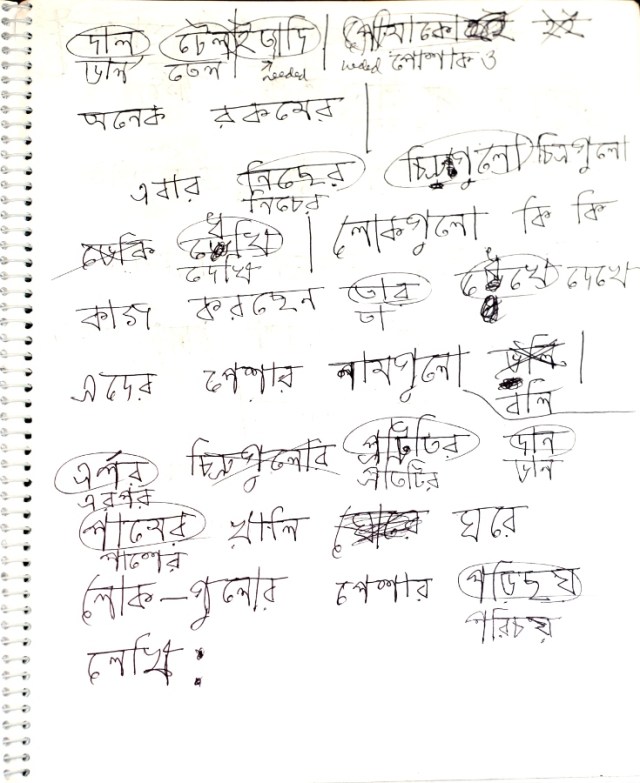 দাল টেলইত্যাদি | পোষাকেো হই
ডাল তেল needed needed পোশাক ও
অনেক রকমের |
এবার নিছের চিত্রগুলো চিত্রগুলো
নিচের
দেখি | লোকগুলো কি কি
দেখি
কাজ করছেন তার দেখে দেখে
তা
এদের পেশার নামগুলো বলি |
বলি
এর্পর চিত্রগুলোর প্রটিতির দান
এরপর প্রতিটির ডান
পামের খালি ঘরে
পাশের
লোক-গুলোর পেশার পড়িছয়
পরিচয়
লেখি :